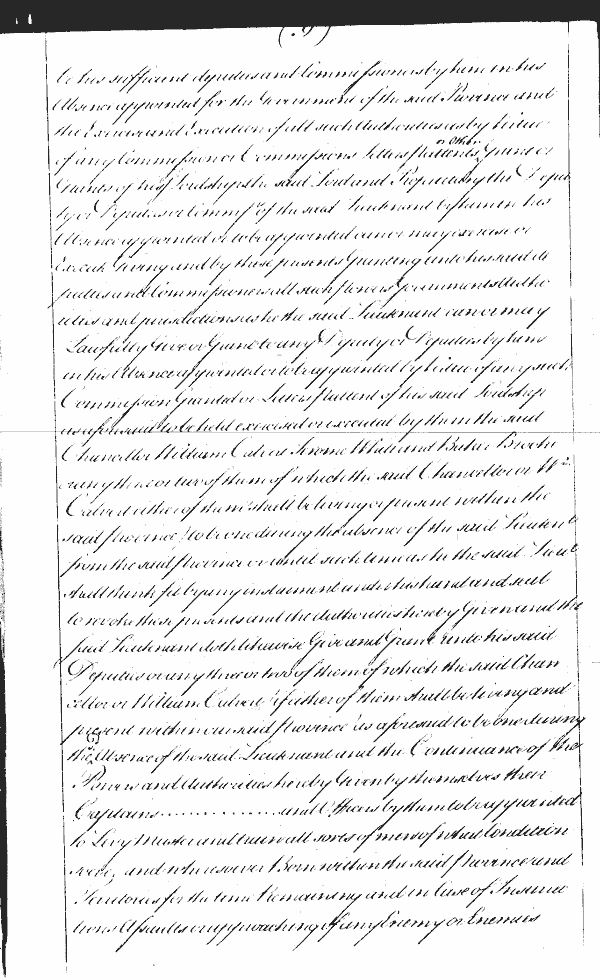 be his sufficient deputies and Commissioners by him in his
Absence appointed for the Government of the said Province and
the Exercise and Execution of all such Authorities as by Virtue
of any Commission or Commissions Letters Pattents or Other Grant or
Grants of his Lordships the said Lord and Proprietary the Depu
ty or Deputies or Commrs of the said Lieutenant by him in his
Absence appointed or to be appointed can or may exercise or
Execute Giving and by these presents Granting unto his said de
puties and Commissioners all such Powers Governments Autho
rities and jurisdictions as he the said Lieutenant can or may
Lawfully Give or Grant to any Deputy or Deputies by him
in his Absence appointed or to be appointed by Virtue of any such
Commission Granted or Letters Pattent of his said Lordship
as aforesaid to be held exercised or executed by them the said
Chancellor William Calvert Jerome White and Baker Brooke
or any three or two of them of which the said Chancellor or Wm
Calvert either of them shall be living or present within the
said Province to be one during the absence of the said Lieutent
from the said Province or until such time as he the said Lieut
shall think fit by any instrument under his hand and seal
to revoke these presents and the Authorities hereby Given and the
said Lieutenant doth likewise Give and Grant unto his said
Deputies or any three or two of them of which the said Chan
cellor or William Calvert if either of them shall be living and
present within our said Province as aforesaid to be one during
the Absence of the said Lieutenant and the Continuance of the
Powers and Authorities hereby Given by themselves their
Captains .............. and Officers by them to be appointed
to Levy Muster and train all sorts of men of what Condition
soever and wheresoever Born within the said Province and
Territories for the time Remaining and in Case of Insurrec
tions Assaults or approaching of any Enemy or Enemies